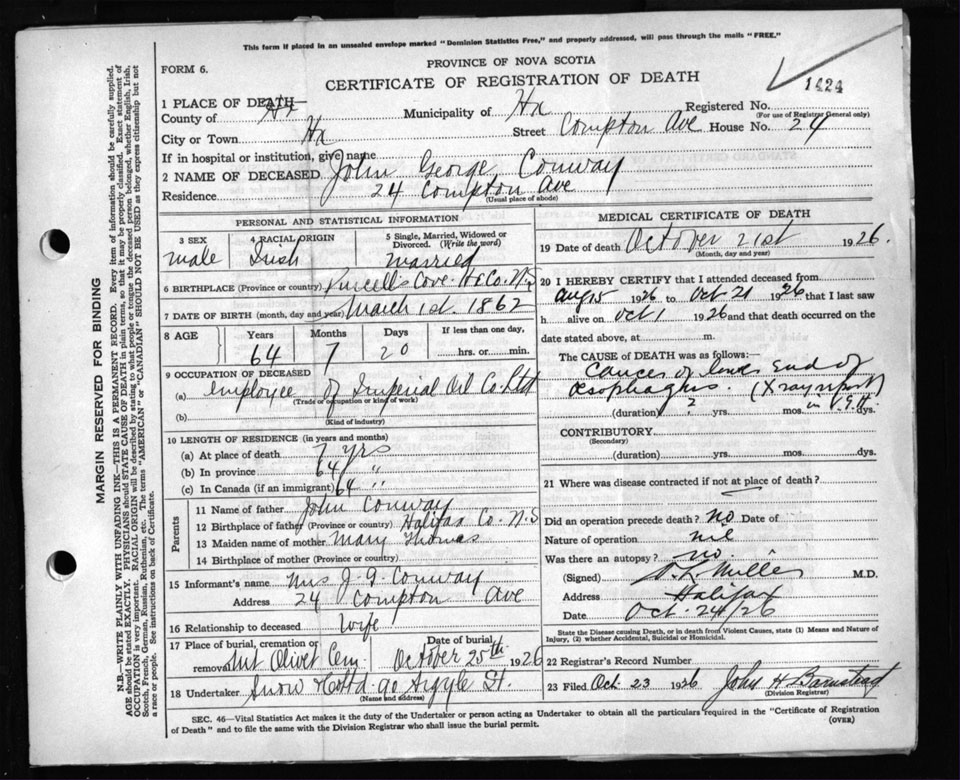 This form if placed in an unsealed envelope marked "Dominion Statistics Free," and properly addressed, will pass through the mails "FREE."
FORM 6.
PROVINCE OF NOVA SCOTIA
CERTIFICATE OF REGISTRATION OF DEATH
1424
1 PLACE OF DEATH
County of Hx Municipality of Hx Registered No.
(For use of Registrar General only)
City or Town Hx Street Compton Ave House No. 24
If in hospital or institution, give name
2 NAME OF DECEASED John George Conway
Residence 24 Compton Ave
(Usual place of abode)
PERSONAL AND STATISTICAL INFORMATION
3 SEX 4 RACIAL ORIGIN 5 Single, Married, Widowed or Divorced. (Write the word)
male Irish married
6 BIRTHPLACE (Province or country) Purcell's Cove Hx Co. N.S
7 DATE OF BIRTH (month, day and year) March 1st. 1862
8 AGE Years Months Days If less than one day,
64 7 20 hrs. or min.
9 OCCUPATION OF DECEASED
(a) employee of Imperial Oil Co. Ltd
(Trade or occupation or kind of work)
(b)
(Kind of industry)
10 LENGTH OF RESIDENCE (in years and months)
(a) At place of death 7 yrs
(b) In province 64 "
(c) In Canada (if an immigrant) 64 "
Parents
11 Name of father John Conway
12 Birthplace of father (Province or country) Halifax Co. N.S
13 Maiden name of mother Mary Thomas
14 Birthplace of mother (Province or country)
15 Informant's name Mrs J. G. Conway
Address 24 Compton Ave
16 Relationship to deceased Wife
17 Place of burial, cremation or removal Mt Olivet Cem. Date of burial October 25th 1926
18 Undertaker Snow & Co Ltd - 90 Argyle St.
(Name and address)
MEDICAL CERTIFICATE OF DEATH
19 Date of death October 21st 1926.
(Month, day and year)
20 I HEREBY CERTIFY that I attended deceased from
Aug 15 1926 to Oct 21 1926 that I last saw
h alive on Oct 1 1926 and that death occurred on the
date stated above, at m.
The CAUSE OF DEATH was as follows:
Cancer of lower End of
Œsophagus. (X ray report
(duration) ? yrs. mos. in V.G.H. dys.
CONTRIBUTORY
(Secondary)
(duration) yrs. mos. dys.
21 Where was disease contracted if not at place of death?
Did an operation precede death? No Date of
Nature of operation nil
Was there an autopsy? no.
(Signed) Miller M.D.
Address Halifax
Date Oct. 24/26
State the Disease causing Death, or in death from Violent Causes, state (1) Means and Nature of Injury, (2) whether Accidental, Suicidal or Homicidal.
22 Registrar's Record Number
23 Filed Oct 23 1926 John H Barnstead
(Division Registrar)
SEC. 46—Vital Statistics Act makes it the duty of the Undertaker or person acting as Undertaker to obtain all the particulars required in the "Certificate of Registration
of Death" and to file the same with the Division Registrar who shall issue the burial permit. (OVER)
MARGIN RESERVED FOR BINDING
N.B.—WRITE PLAINLY WITH UNFADING INK—THIS IS A PERMANENT RECORD. Every item of information should be carefully supplied.
AGE should be stated EXACTLY. PHYSICIANS should STATE CAUSE OF DEATH in plain terms, so that it may be properly classified. Exact statement of
OCCUPATION is very important. RACIAL ORIGIN will be described by stating to what people or tongue the deceased person belonged, whether English, Irish,
Scotch, French, German, Russian, Ruthenian, etc. The terms "AMERICAN" or "CANADIAN" SHOULD NOT BE USED as they express citizenship but not
a race or people. See instructions on back of Certificate.